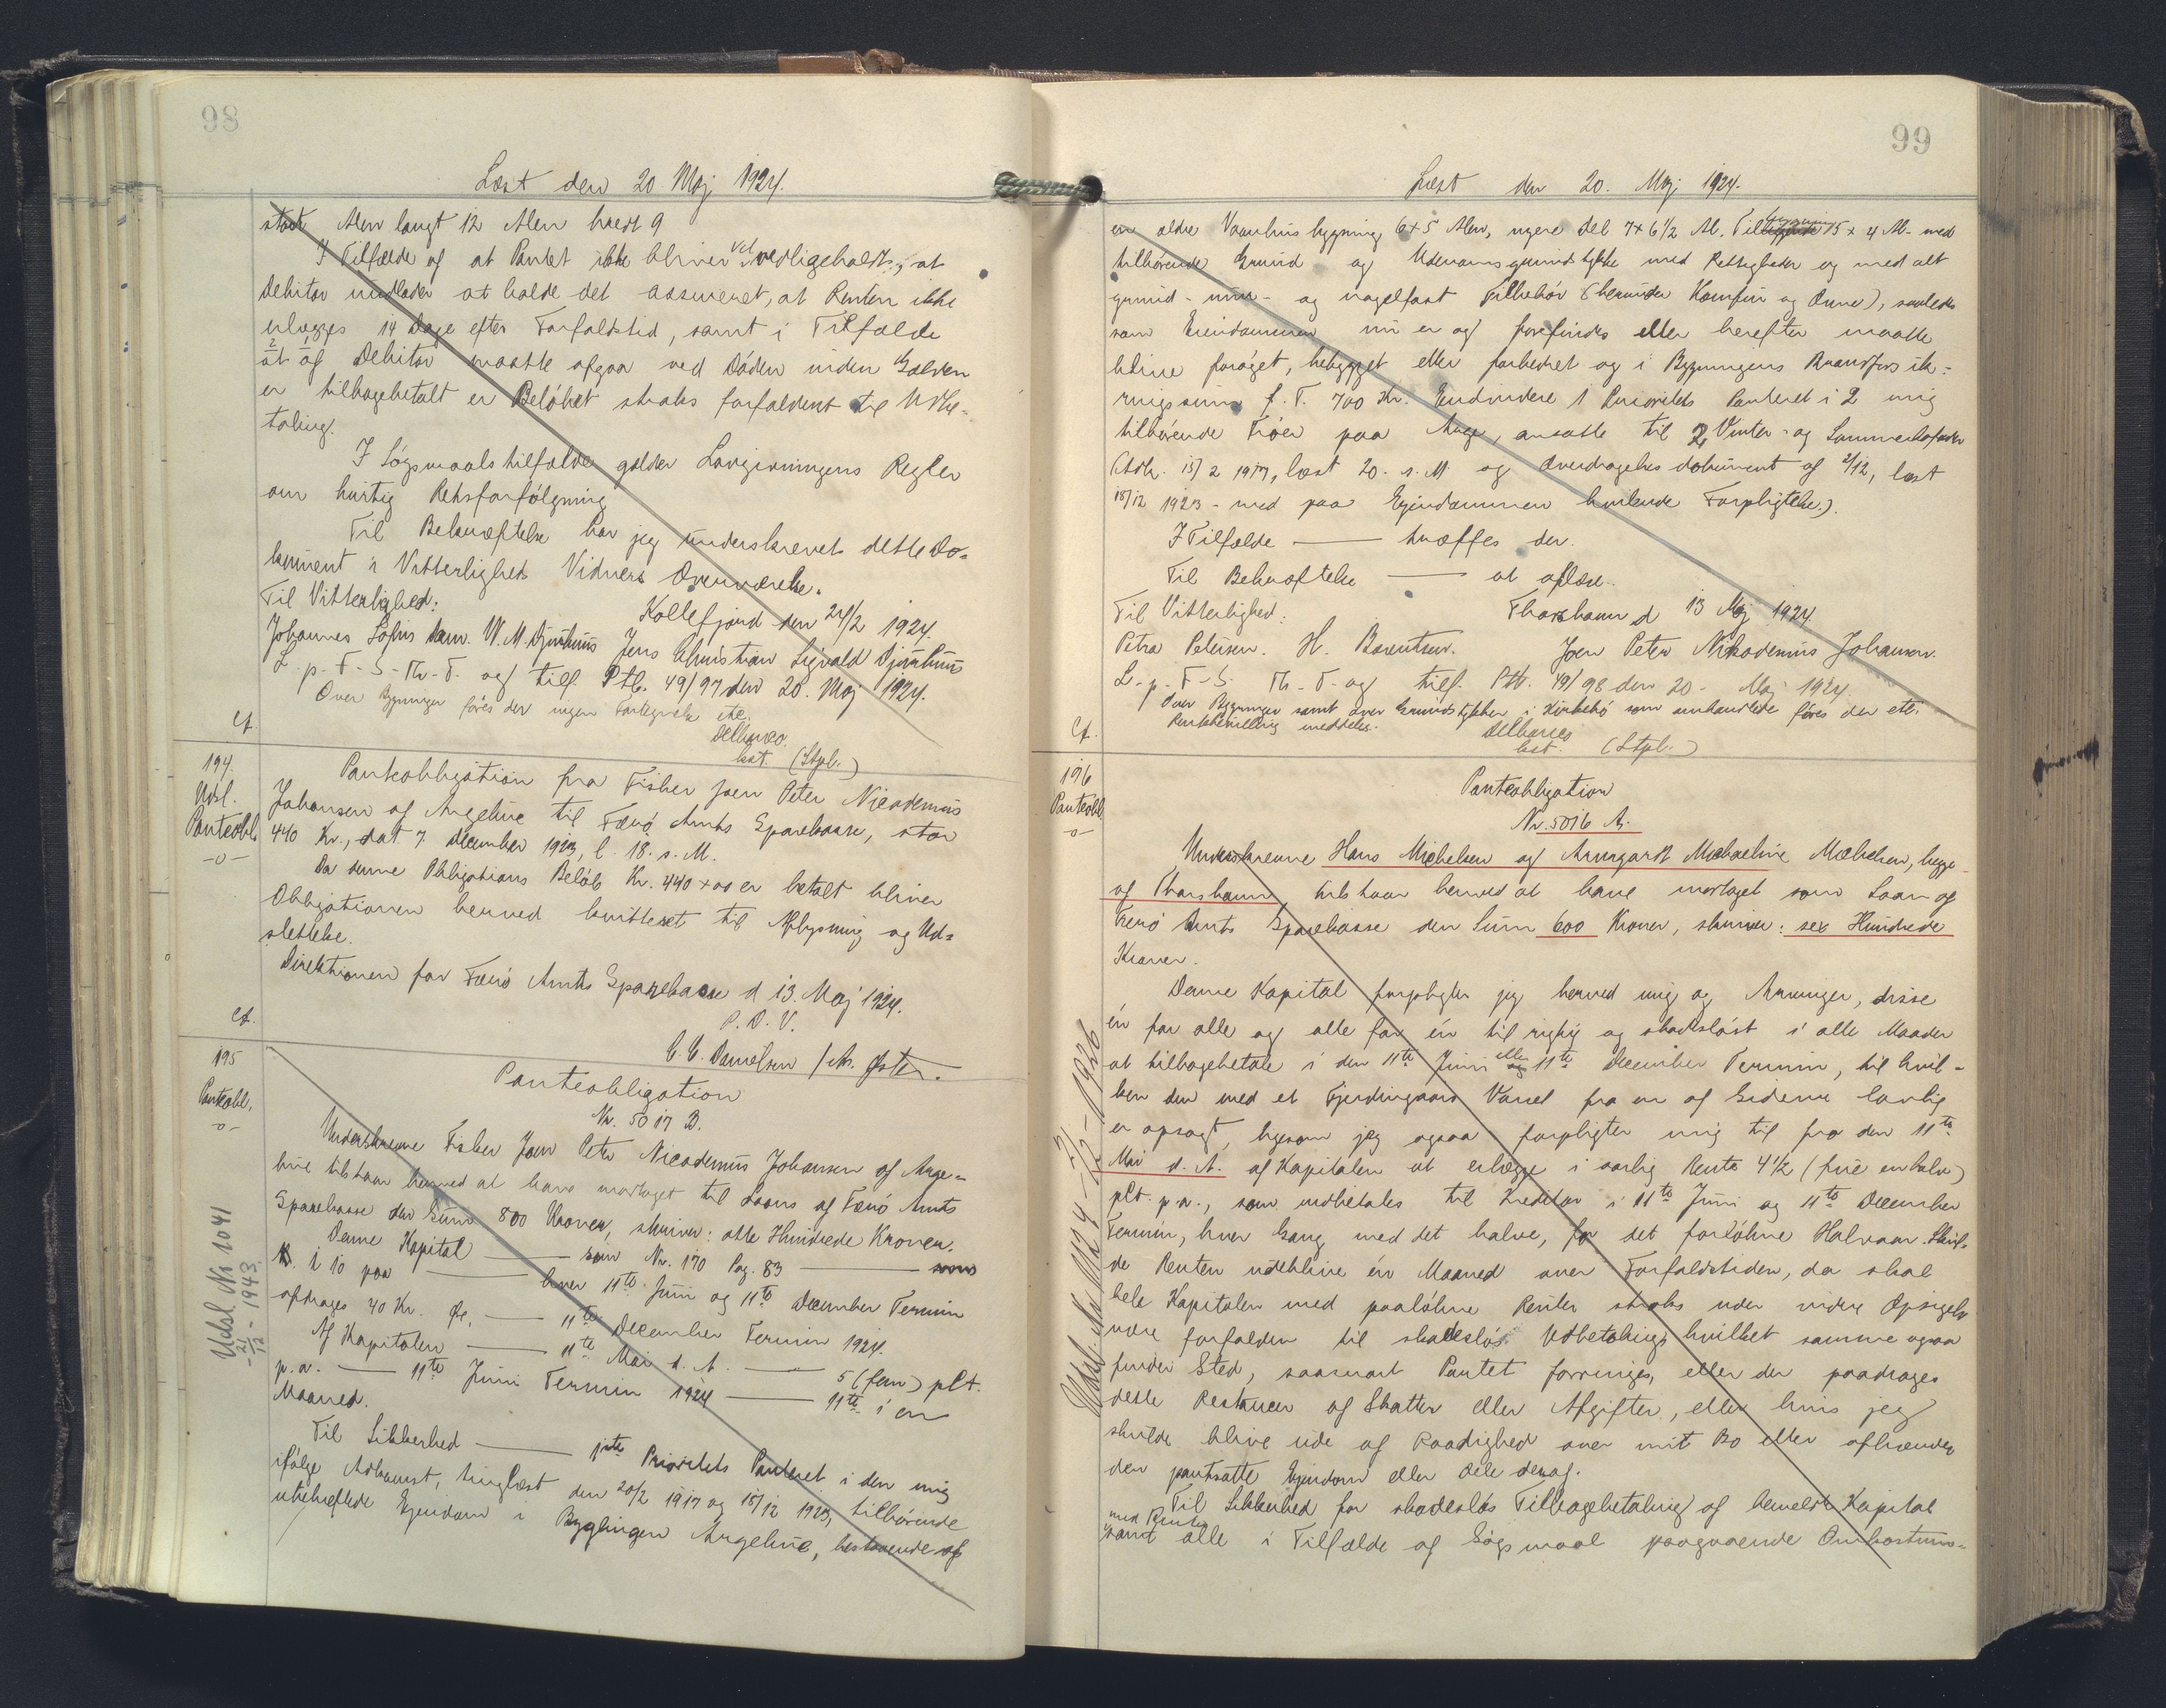 98
Læst den 20 Maj 1924.
stort Alen langt 12 Alen bredt 9
I Tilfælde af at Pantet ikke bliver vel vedligeholdt, at
Debitor undlader at holde det assureret, at Renten ikke
erlægges 14 Dage efter Forfaldstid, samt i Tilfælde
at af Debitor maatte afgaa ved Døden inden Gælden
er tilbagebetalt er Beløbet straks forfaldent til Udbe-
taling.
I Søgsmaalstilfælde gælder Lovgivningens Regler
om hurtig Retsforfølgning
Til Bekræftelse har jeg underskrevet dette Do-
kument i Vitterligheds Vidners Overværelse.
Kollefjord den 24/2 1924.
Til Vitterlighed:
Johannes Sofus Sam. W. M. Djurhuus Jens Christian Sigvald Djurhuus
L-p-F-S-Th-F. og tilf. Ptb. 49/97 den 20. Maj 1924.
Over Bygninger føres der ingen Fortegnelse etc.
Cf.
kst. (Stpl.)
194.
Udsl.
Panteobl.
-o-
Panteobligation fra Fisker Joen Peter Nicodemus
Johansen af Argehue til Færø Amts Sparekasse, stor
440 Kr., dat. 7. December 1923, l. 18. s. M.
Da denne Obligations Beløb Kr. 440 + oo er betalt bliver
Obligationen herved kvitteret til Aflysning og Ud-
slettelse.
Direktionen for Færø Amts Sparekasse d 13. Maj 1924.
P. D. V.
C. C. Danielsen /
Cf.
195
Panteobl.
-o-
Panteobligation
Nr. 5017 B.
Underskrevne Fisker Joen Peter Nicodemus Johansen af Arge-
hue tilstaar herved at have modtaget til Laans af Færø Amts
Sparekasse den Sum 800 Kroner, skriver: otte Hundrede Kroner.
Denne Kapital — som Nr. 170 Pag. 83 — som
K. i 10 paa — hver 11te Juni og 11te December Termin
afdrages 40 Kr. — 11te December Termin 1924.
Af Kapitalen — 11te Mai d. A. — 5 (fem) pCt.
p.a. — 11te Juni Termin 1924 — 11te i en
Maaned.
Til Sikkerhed — 1ste Prioritets Panteret i den mig
ifølge Adkomst, tinglæst den 20/2 1917 og 18/12 1923, tilhørende
ubehæftede Ejendom i Bygdingen Argehue, bestaaende af
Udsl. Nr 1041
- 21/12 - 1943.
99
Læst den 20. Maj 1924.
en ældre Vaanhusbygning 6 + 5 Alen, nyere Del 7 + 6 1/2 Al. Tilbygning 5 x 4 Al. med
tilhørende Grund og Udenomsgrundstykke med Rettigheder og med alt
grund- mur- og nagelfast Tilbehør (herunder Komfur og Ovne), saaledes
som Ejendommen nu er og forefindes eller herefter maatte
blive forøget, bebygget eller forbedret og i Bygningens Brandforsik-
ringssum f. T. 700 Kr. Endvidere 1 Prioritets Panteret i 2 mig
tilhørende Køer paa Arge, ansatte til 2 Vinter- og Sommerhøfoder
(Adk. 15/2 1917, læst 20. s. M. og Overdragelsesdokument af 2/12, læst
18/12 1923 - med paa Ejendommen hvilende Forpligtelse.)
I Tilfælde — træffes der.
Til Bekræftelse — at aflæse.
Til Vitterlighed: Thorshavn d 13 Maj 1924
Petra Petersen. H. Berentsen. Joen Peter Nikodemus Johansen.
L-p-F-S. Th-F- og tilf. Ptb. 49/98 den 20- Maj 1924.
Over Bygninger samt over Grundstykker i Kirkebø som omhandlede føres der etc.
Rentebevilling meddeles.
Cf.
kst. (Stpl.)
196
Panteobl.
-o-
Panteobligation
Nr. 5016 A.
Underskrevne Hans Michelsen og Armgardt Michaeline Michelsen, begge
af Thorshavn, tilstaar herved at have modtaget som Laan af
Færø Amts Sparekasse den Sum 600 Kroner, skriver: sex Hundrede
Kroner.
Denne Kapital forpligter jeg herved mig og Arvinger, disse
én for alle og alle for én til rigtig og skadesløst i alle Maader
at tilbagebetale i den 11te Juni eller 11te December Termin, til hvil-
ken den med et Fjerdingaars Varsel fra en af Siderne lovlig
er opsagt, ligesom jeg ogsaa forpligter mig til fra den 11te
Mai d. A. af Kapitalen at erlægge i aarlig Rente 4 1/2 (fire en halv)
pCt. p.a., som indbetales til Kreditor i 11te Juni og 11te December
Termin, hver Gang med det halve, for det forløbne Halvaar. Skul-
de Renten udeblive én Maaned over Forfaldstiden, da skal
hele Kapitalen med paaløbne Renter straks uden videre Opsigelse
være forfalden til skadesløs Udbetaling, hvilket samme ogsaa
finder Sted, saasnart Pantet forringes, eller der paadrages
dette Restancer af Skatter eller Afgifter, eller hvis jeg
skulde blive ude af Raadighed over mit Bo eller afhænder
den pantsatte Ejendom eller Dele deraf.
Til Sikkerhed for skadesløs Tilbagebetaling af bemeldte Kapital
med Renter
samt alle i Tilfælde af Søgsmaal paagaaende Omkostnin-